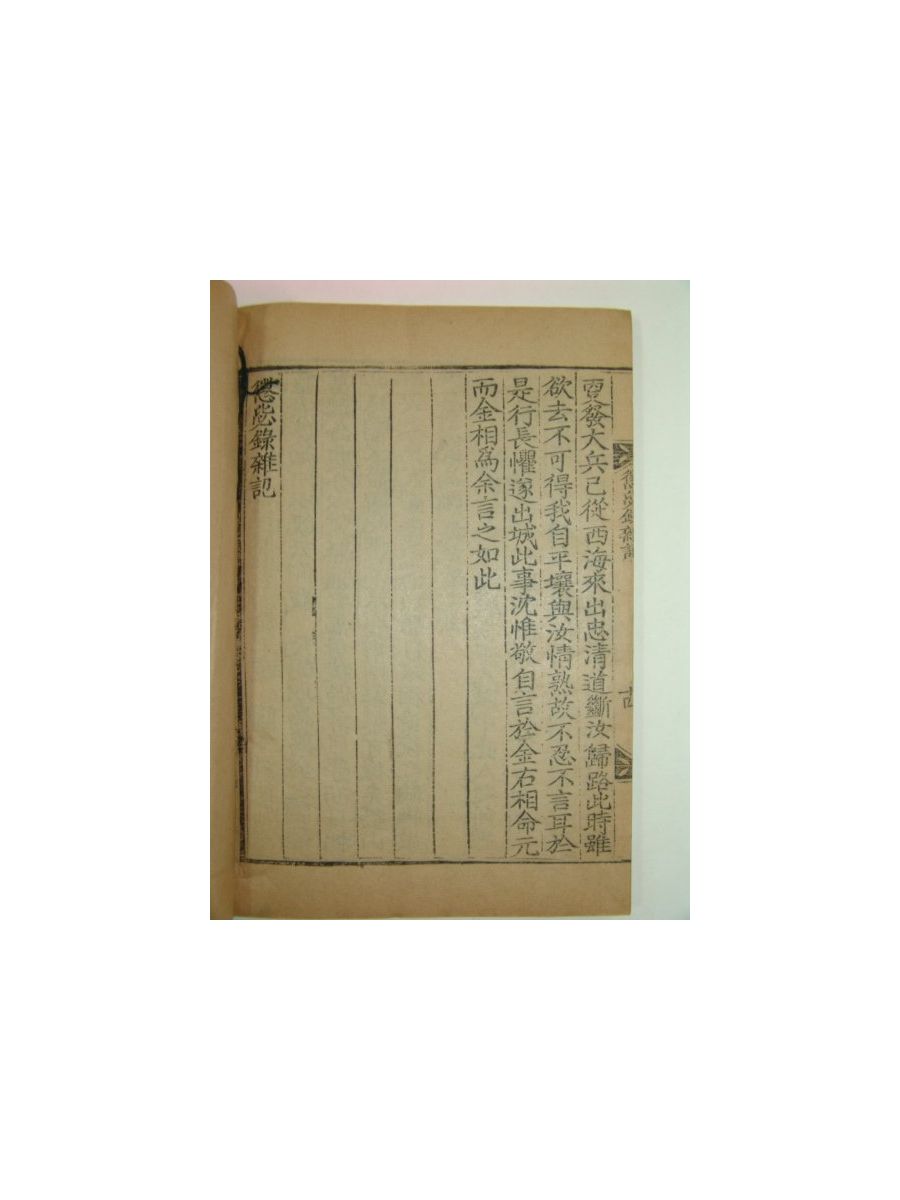 懲毖錄雜記
發大兵已從西海來出忠清道斷汝歸路此時雖
欲去不可得我自平壤與汝情熟故不忍不言耳於
是行長懼遂出城此事沈惟敬自言於金右相命元
而金相爲余言之如此
懲毖錄雜記